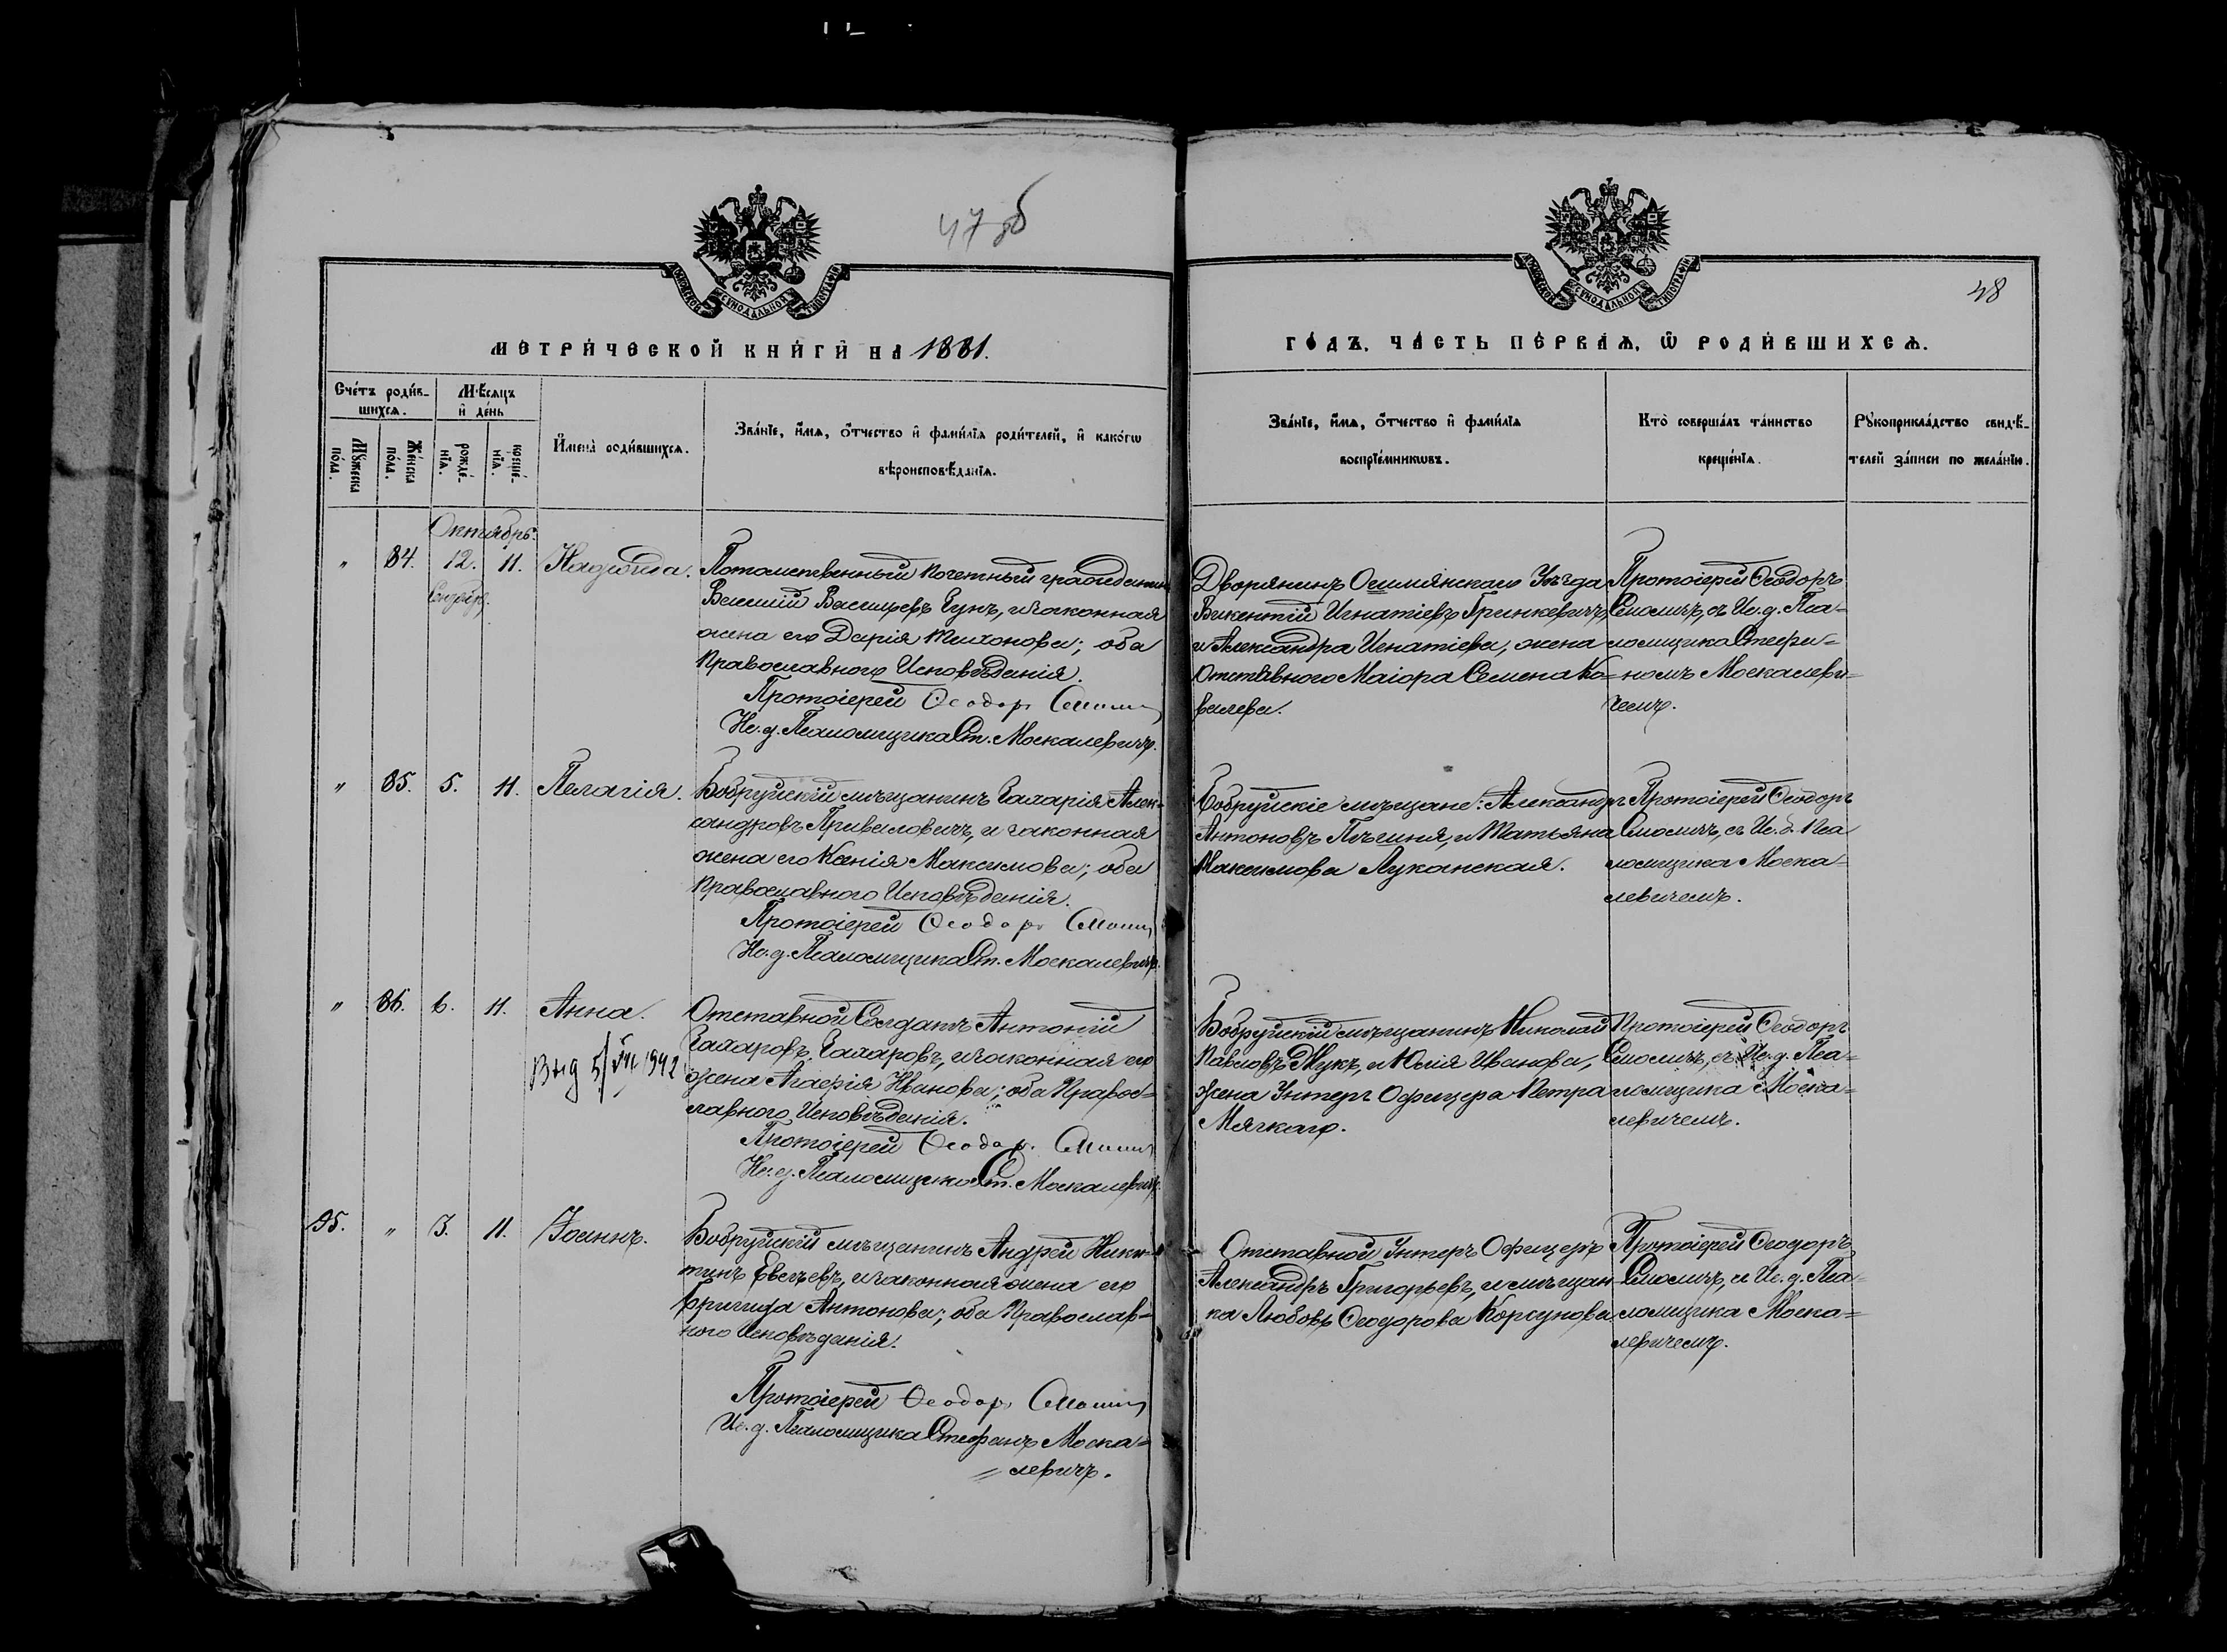 47 об
48
МЕТРИ́ЧЕСКОЙ КНИ́ГИ НА 1881.
ГО́ДЪ. ЧА́СТЬ ПЕ́РВАѦ, Ѽ РОДИ́ВШИХСѦ.
Сче́тъ роди́в-
шихсѧ.
Мѣ́сѧцъ
и де́нь
Мꙋ́жеска
по́ла.
Же́нска
по́ла.
рожде́-
нїѧ.
креще́-
нїѧ.
Имена̀ роди́вшихсѧ.
Зва́нїе, и́мѧ, о́тчество и фами́лїѧ роди́телей, и како́гѡ
вѣроисповѣ́данїѧ.
Зва́нїе, и́мѧ, о́тчество и фами́лїѧ
воспрїе́мникѡвъ.
Кто̀ соверша́лъ та́инство
креще́нїѧ.
Рꙋкоприкла́дство свидѣ́-
телей за́писи по жела́нїю.
Октябрь.
" 84. 12. 11. Надежда.
Сентября.
Потомственный Почетный гражданин
Василій Васильевъ Гунъ, и законная
жена его Дарія Тихонова; оба
Православного Исповѣданія.
Протоіерей Ѳеодоръ Смоличъ
Ис. д. Псаломщика Ст. Москалевичъ.
Дворянинъ Ошмянскаго Уѣзда
Викентій Игнатіевъ Гринкевичъ,
и Александра Игнатіева, жена
Отставного Маіора Семена Ко-
валева.
Протоіерей Ѳеодоръ
Смоличъ, съ Ис. д. Пса-
ломщика Стефа-
номъ Москалеви-
чемъ.
" 85. 5. 11. Пелагія.
Бобруйскій мѣщанинъ Захарія Алек-
сандровъ Приваловичъ, и законная
жена его Ксенія Максимова; оба
Православного Исповѣданія.
Протоіерей Ѳеодоръ Смоличъ
Ис. д. Псаломщика Ст. Москалевичъ.
Бобруйскіе мѣщане: Александръ
Антоновъ Пѣшня, и Татьяна
Максимова Луканская.
Протоіерей Ѳеодоръ
Смоличъ, съ Ис. д. Пса
ломщика Моска-
левичемъ.
" 86. 6. 11. Анна.
Выд 5/VII 1942
Отставной Солдатъ Антоній
Захаровъ Захаровъ, и законная его
жена Агафія Иванова; оба Правос-
лавного Исповѣданія.
Протоіерей Ѳеодоръ Смоличъ
Ис. д. Псаломщика Ст. Москалевичъ.
Бобруйскій мѣщанинъ Николай
Павловъ Жукъ, и Юлія Иванова,
жена Унтеръ Офицера Петра
Мягкаго.
Протоіерей Ѳеодоръ
Смоличъ, съ Ис. д. Пса-
ломщика Моска-
левичемъ.
95. " 3. 11. Іоаннъ.
Бобруйскій мѣщанинъ Андрей Ники-
тинъ Евсѣевъ, и законная жена его
Бригида Антонова; оба Православ-
ного Исповѣданія.
Протоіерей Ѳеодоръ Смоличъ
Ис. д. Псаломщика Стефанъ Моска-
левичъ.
Отставной Унтеръ Офицеръ
Александръ Григорьевъ, и мѣщан-
ка Любовь Ѳеодорова Корсунова.
Протоіерей Ѳеодоръ
Смоличъ, съ Ис. д. Пса-
ломщика Моска-
левичемъ.